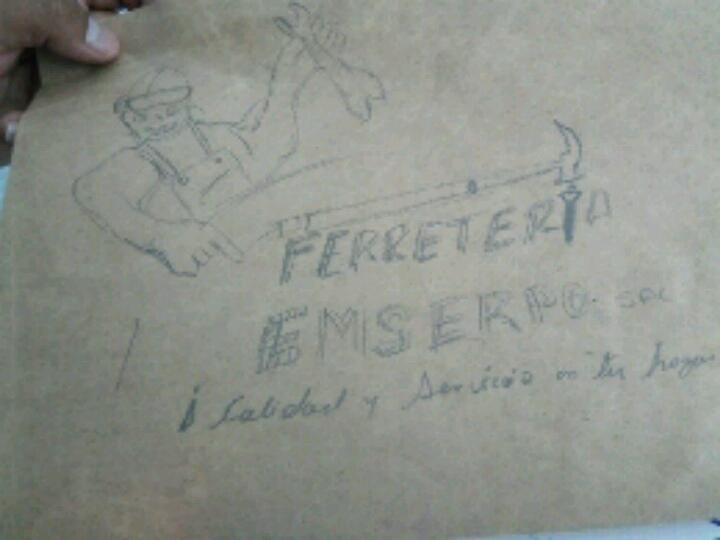 FERRETERIA
EMSERPO. SRL
¡Calidad y Servicio en tu hogar